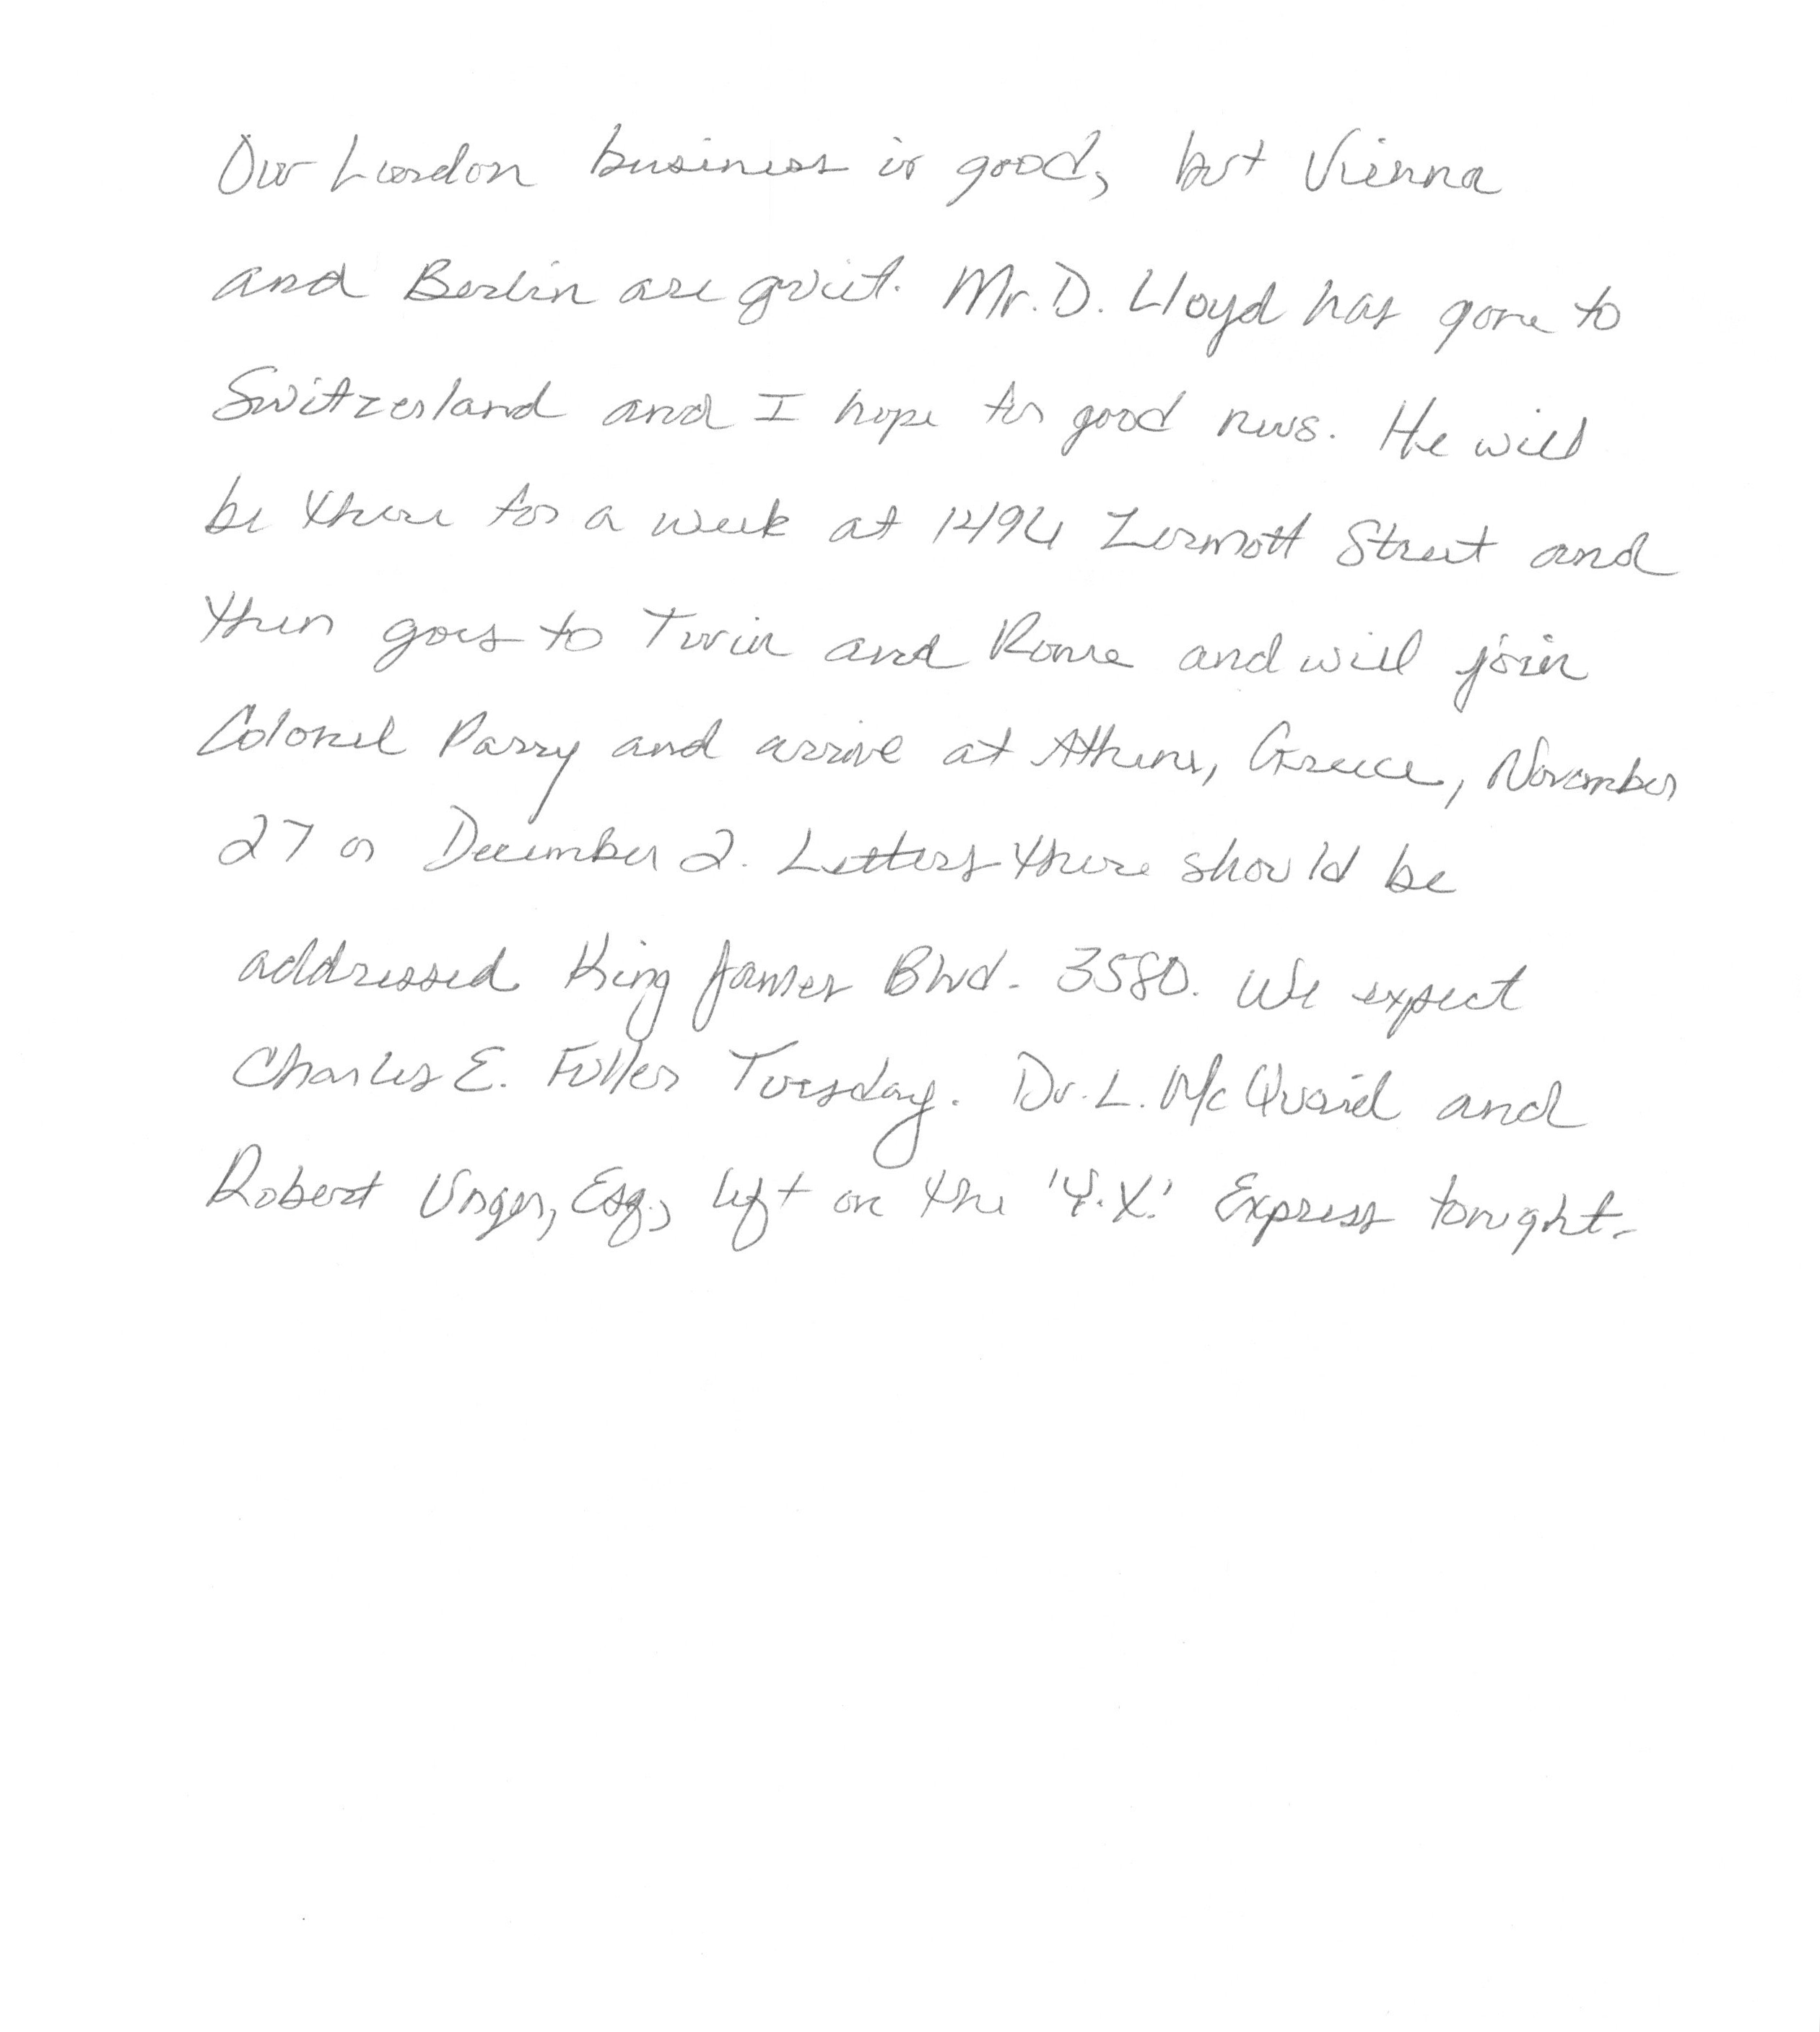 Our London business is good, but Vienna
and Berlin are quiet. Mr. D. Lloyd has gone to
Switzerland and I hope for good news. He will
be there for a week at 1496 Zermott Street and
then goes to Turin and Rome and will join
Colonel Parry and arrive at Athens, Greece, November
27 or December 2. Letters there should be
addressed King James Blvd. 3580. We expect
Charles E. Fuller Tuesday. Dr. L. McQuaid and
Robert Unger, Esq., left on the 'Y.X.' Express tonight.